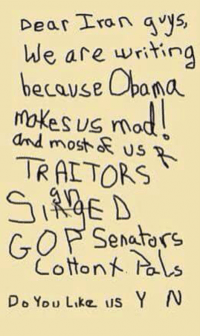 Dear Iran guys,
We are writing
because Obama
makes us mad!
and most of us R
TRAITORS
SIgnED
GOP Senators
Cotton X Pals
Do You Like us Y N